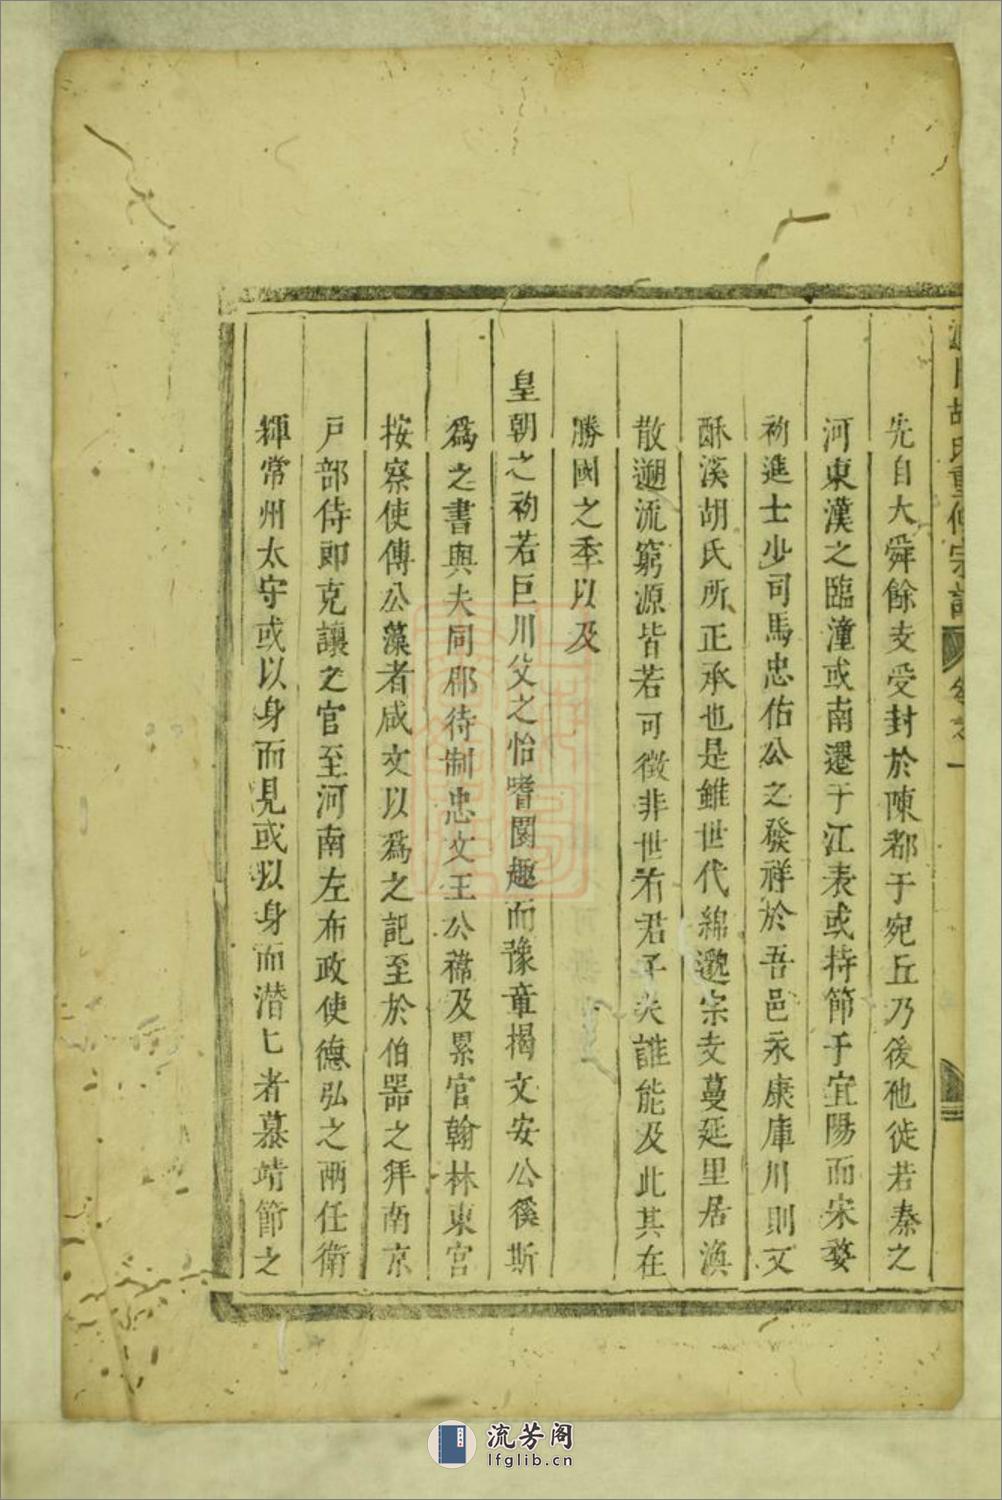 胡氏重修宗譜 卷之一
先自大舜餘支受封於陳都于宛丘乃後他徙若秦之
河東漢之臨潼或南遷于江表或持節于宜陽而宋婺
初進士少司馬忠佑公之發祥於吾邑永康庫川則又
酥溪胡氏所正承也是雖世代綿邈宗支蔓延里居渙
散遡流窮源皆若可徵非世有君子夫誰能及此其在
勝國之季以及
皇朝之初若巨川父之怡嗜園趣而豫章揭文安公徯斯
爲之書與夫同郡待制忠文王公褘及累官翰林東宮
按察使傅公藻者咸文以爲之記至於伯器之拜南京
戶部侍郎克讓之官至河南左布政使德弘之兩任衛
輝常州太守或以身而見或以身而潛匕者慕靖節之
流芳阁
lfglib.cn